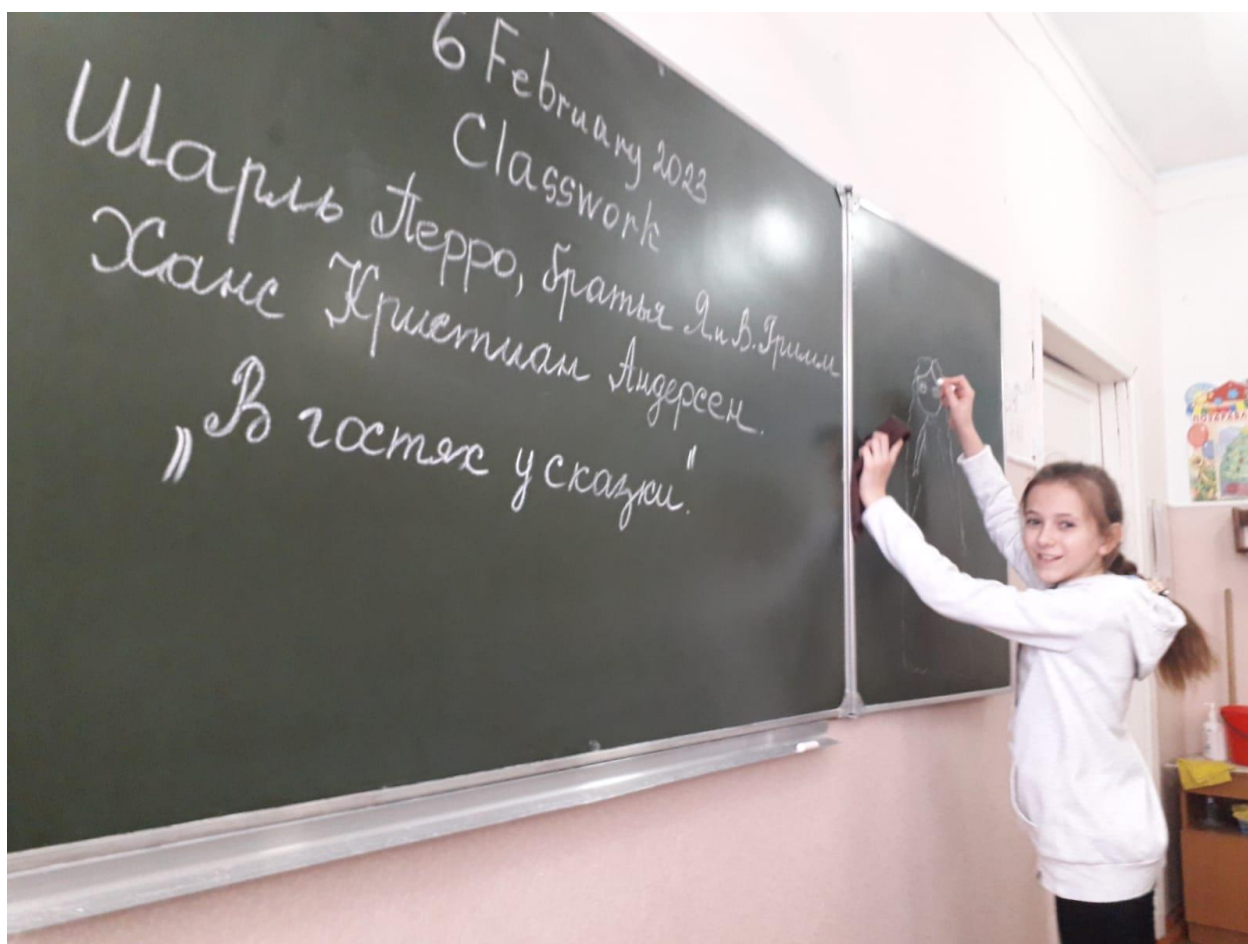 6 February 2023
Classwork
Шарль Перро, братья Я. и В. Гримм
Ханс Кристиан Андерсен.
„В гостях у сказки".